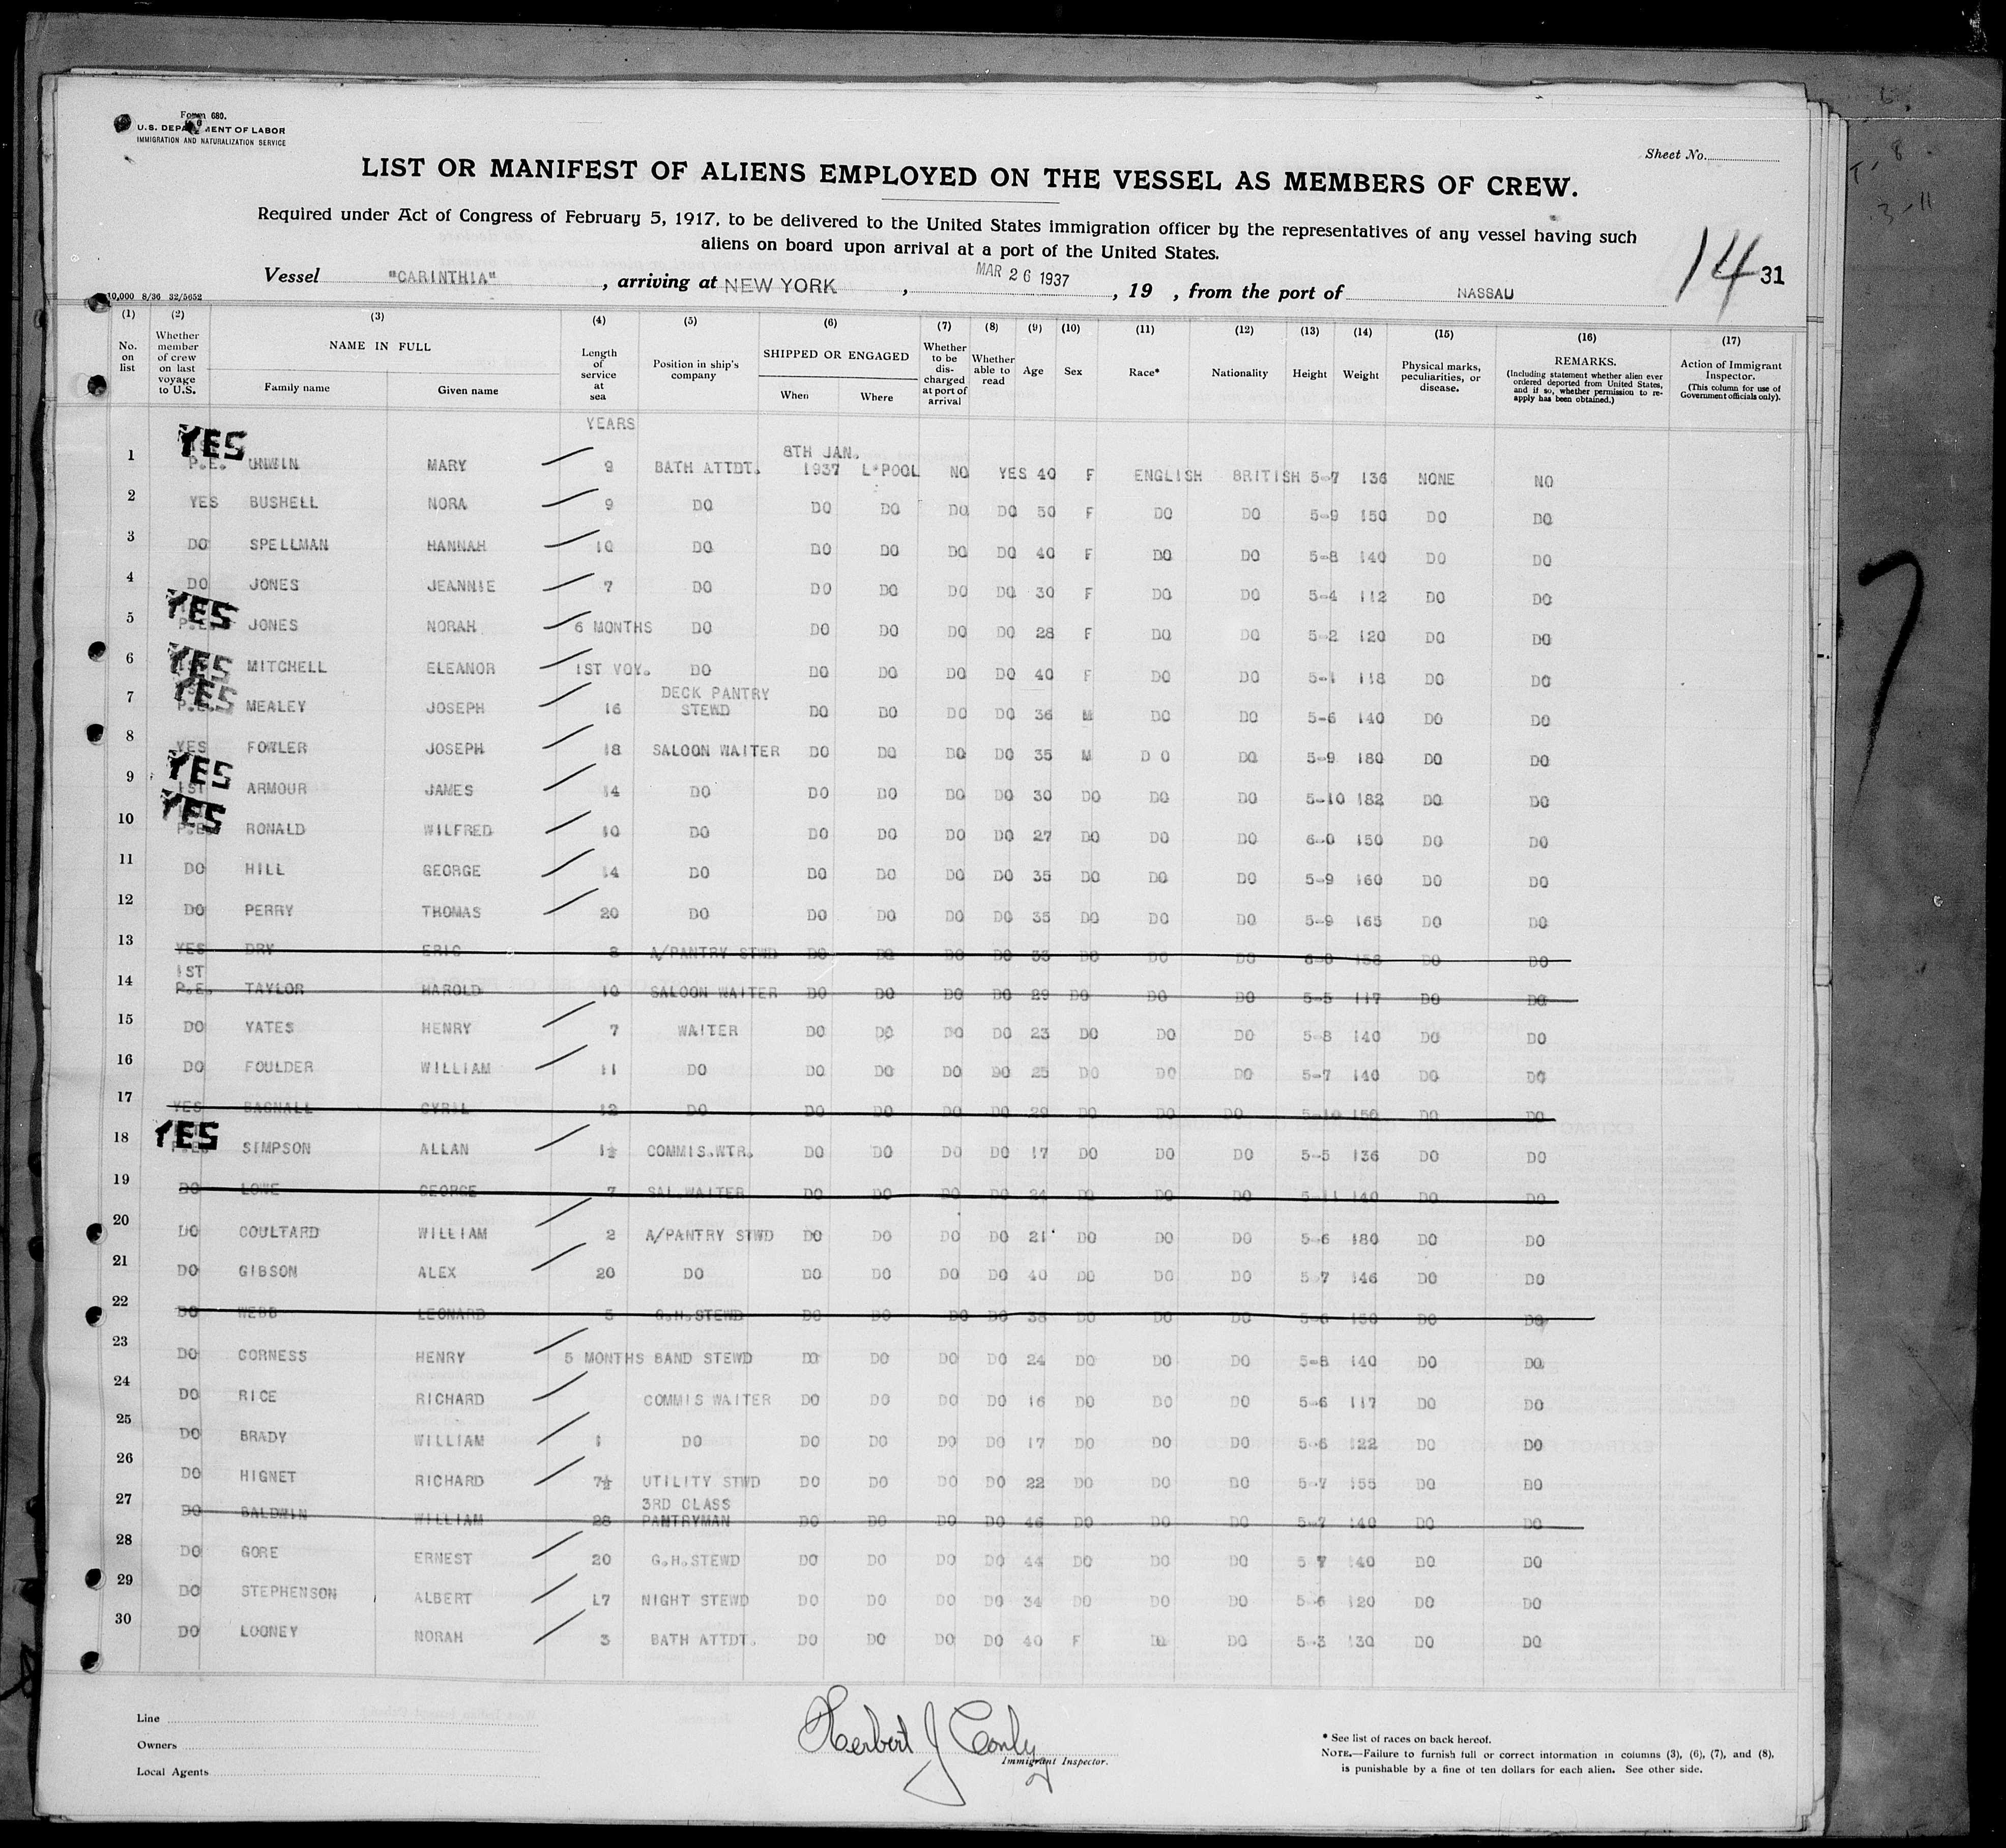 Form 680.
U.S. DEPARTMENT OF LABOR
IMMIGRATION AND NATURALIZATION SERVICE
Sheet No.
LIST OR MANIFEST OF ALIENS EMPLOYED ON THE VESSEL AS MEMBERS OF CREW.
Required under Act of Congress of February 5, 1917, to be delivered to the United States immigration officer by the representatives of any vessel having such
aliens on board upon arrival at a port of the United States.
Vessel "CARINTHIA" , arriving at NEW YORK , MAR 26 1937 , 19 , from the port of NASSAU
14 31
10,000 8/36 32/5652
(1) (2) (3) (4) (5) (6) (7) (8) (9) (10) (11) (12) (13) (14) (15) (16) (17)
No. on list
Whether member of crew on last voyage to U.S.
NAME IN FULL
Family name
Given name
Length of service at sea
Position in ship's company
SHIPPED OR ENGAGED
When
Where
Whether to be discharged at port of arrival
Whether able to read
Age
Sex
Race*
Nationality
Height
Weight
Physical marks, peculiarities, or disease.
REMARKS.
(Including statement whether alien ever ordered deported from United States, and if so, whether permission to re-apply has been obtained.)
Action of Immigrant Inspector.
(This column for use of Government officials only).
YEARS
1 YES P.E. UNWIN MARY 9 BATH ATTDT. 8TH JAN. 1937 L'POOL NO YES 40 F ENGLISH BRITISH 5-7 136 NONE NO
2 YES BUSHELL NORA 9 DO DO DO DO DO 50 F DO DO 5-9 150 DO DO
3 DO SPELLMAN HANNAH 10 DO DO DO DO DO 40 F DO DO 5-8 140 DO DO
4 DO JONES JEANNIE 7 DO DO DO DO DO 30 F DO DO 5-4 112 DO DO
5 YES P.E. JONES NORAH 6 MONTHS DO DO DO DO DO 28 F DO DO 5-2 120 DO DO
6 YES MITCHELL ELEANOR 1ST VOY. DO DO DO DO DO 40 F DO DO 5-1 118 DO DO
7 YES P.E. MEALEY JOSEPH 16 DECK PANTRY STEWD DO DO DO DO 36 M DO DO 5-6 140 DO DO
8 YES FOWLER JOSEPH 18 SALOON WAITER DO DO DO DO 35 M D O DO 5-9 180 DO DO
9 YES 1ST ARMOUR JAMES 14 DO DO DO DO DO 30 DO DO DO 5-10 182 DO DO
10 YES P.E. RONALD WILFRED 10 DO DO DO DO DO 27 DO DO DO 6-0 150 DO DO
11 DO HILL GEORGE 14 DO DO DO DO DO 35 DO DO DO 5-9 160 DO DO
12 DO PERRY THOMAS 20 DO DO DO DO DO 35 DO DO DO 5-9 165 DO DO
13 YES DRY ERIC 8 A/PANTRY STWD DO DO DO DO DO DO DO DO DO
14 1ST P.E. TAYLOR HAROLD 10 SALOON WAITER DO DO DO DO 29 DO DO DO 5-5 117 DO DO
15 DO YATES HENRY 7 WAITER DO DO DO DO 23 DO DO DO 5-8 140 DO DO
16 DO FOULDER WILLIAM 11 DO DO DO DO 90 25 DO DO DO 5-7 140 DO DO
17 YES BAGNALL CYRIL 12 DO DO DO DO DO 29 DO DO DO 5-10 150 DO DO
18 YES P.E. SIMPSON ALLAN 1½ COMMIS.WTR. DO DO DO DO 17 DO DO DO 5-5 136 DO DO
19 DO LOWE GEORGE 7 SAL.WAITER DO DO DO DO 24 DO DO DO 5-11 140 DO DO
20 DO COULTARD WILLIAM 2 A/PANTRY STWD DO DO DO DO 21 DO DO DO 5-6 180 DO DO
21 DO GIBSON ALEX 20 DO DO DO DO DO 40 DO DO DO 5-7 146 DO DO
22 DO WEBB LEONARD 5 G.H.STEWD DO DO DO DO 38 DO DO DO 5-6 150 DO DO
23 DO CORNESS HENRY 5 MONTHS BAND STEWD DO DO DO DO 24 DO DO DO 5-8 140 DO DO
24 DO RICE RICHARD COMMIS WAITER DO DO DO DO 16 DO DO DO 5-6 117 DO DO
25 DO BRADY WILLIAM 1 DO DO DO DO DO 17 DO DO DO 5-6 122 DO DO
26 DO HIGNET RICHARD 7½ UTILITY STWD DO DO DO DO 22 DO DO DO 5-7 155 DO DO
27 DO BALDWIN WILLIAM 28 3RD CLASS PANTRYMAN DO DO DO DO 46 DO DO DO 5-7 140 DO DO
28 DO GORE ERNEST 20 G.H.STEWD DO DO DO DO 44 DO DO DO 5 7 140 DO DO
29 DO STEPHENSON ALBERT L7 NIGHT STEWD DO DO DO DO 34 DO DO DO 5-6 120 DO DO
30 DO LOONEY NORAH 3 BATH ATTDT. DO DO DO DO 40 F DO DO 5-3 130 DO DO
Line
Owners
Local Agents
Herbert J Conly
Immigrant Inspector.
* See list of races on back hereof.
NOTE.—Failure to furnish full or correct information in columns (3), (6), (7), and (8),
is punishable by a fine of ten dollars for each alien. See other side.